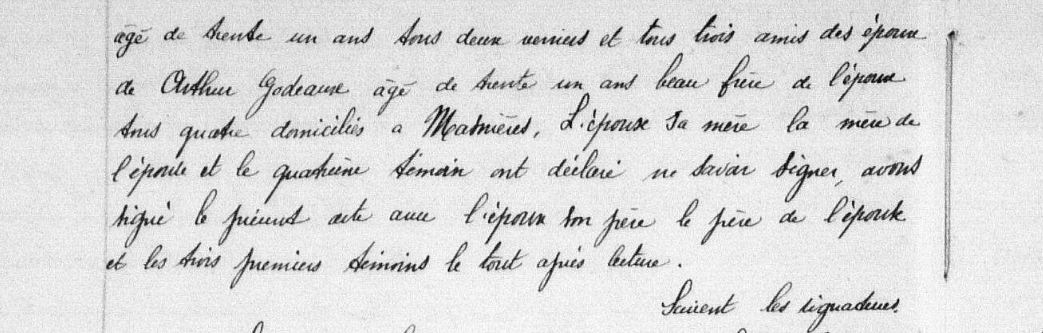 âgé de trente un ans tous deux verriers et tous trois amis des époux
de Arthur Godeaux âgé de trente un ans beau frère de l'époux
tous quatre domiciliés a Masnières, L'épouse sa mère la mère de
l'épouse et le quatrième témoin ont déclaré ne savoir signer, avons
signé le présent acte avec l'époux son père le père de l'épouse
et les trois premiers témoins le tout après lecture.
Suivent les signatures.